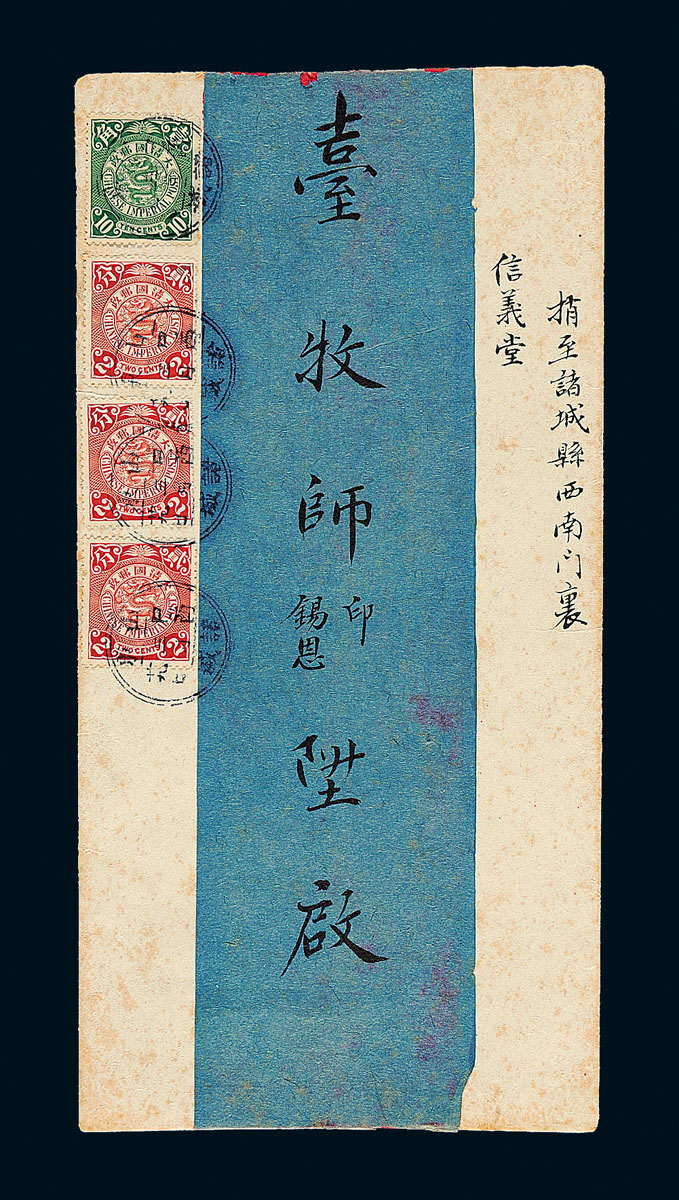 捎至諸城縣西南门裏
信義堂
臺牧師印錫恩陞啟
壹角
大清國郵政
CHINESE IMPERIAL POST
10 TEN CENTS 10
貳分
大清國郵政
CHINESE IMPERIAL POST
2 TWO CENTS 2
貳分
大清國郵政
CHINESE IMPERIAL POST
2 TWO CENTS 2
貳分
大清國郵政
CHINESE IMPERIAL POST
2 TWO CENTS 2